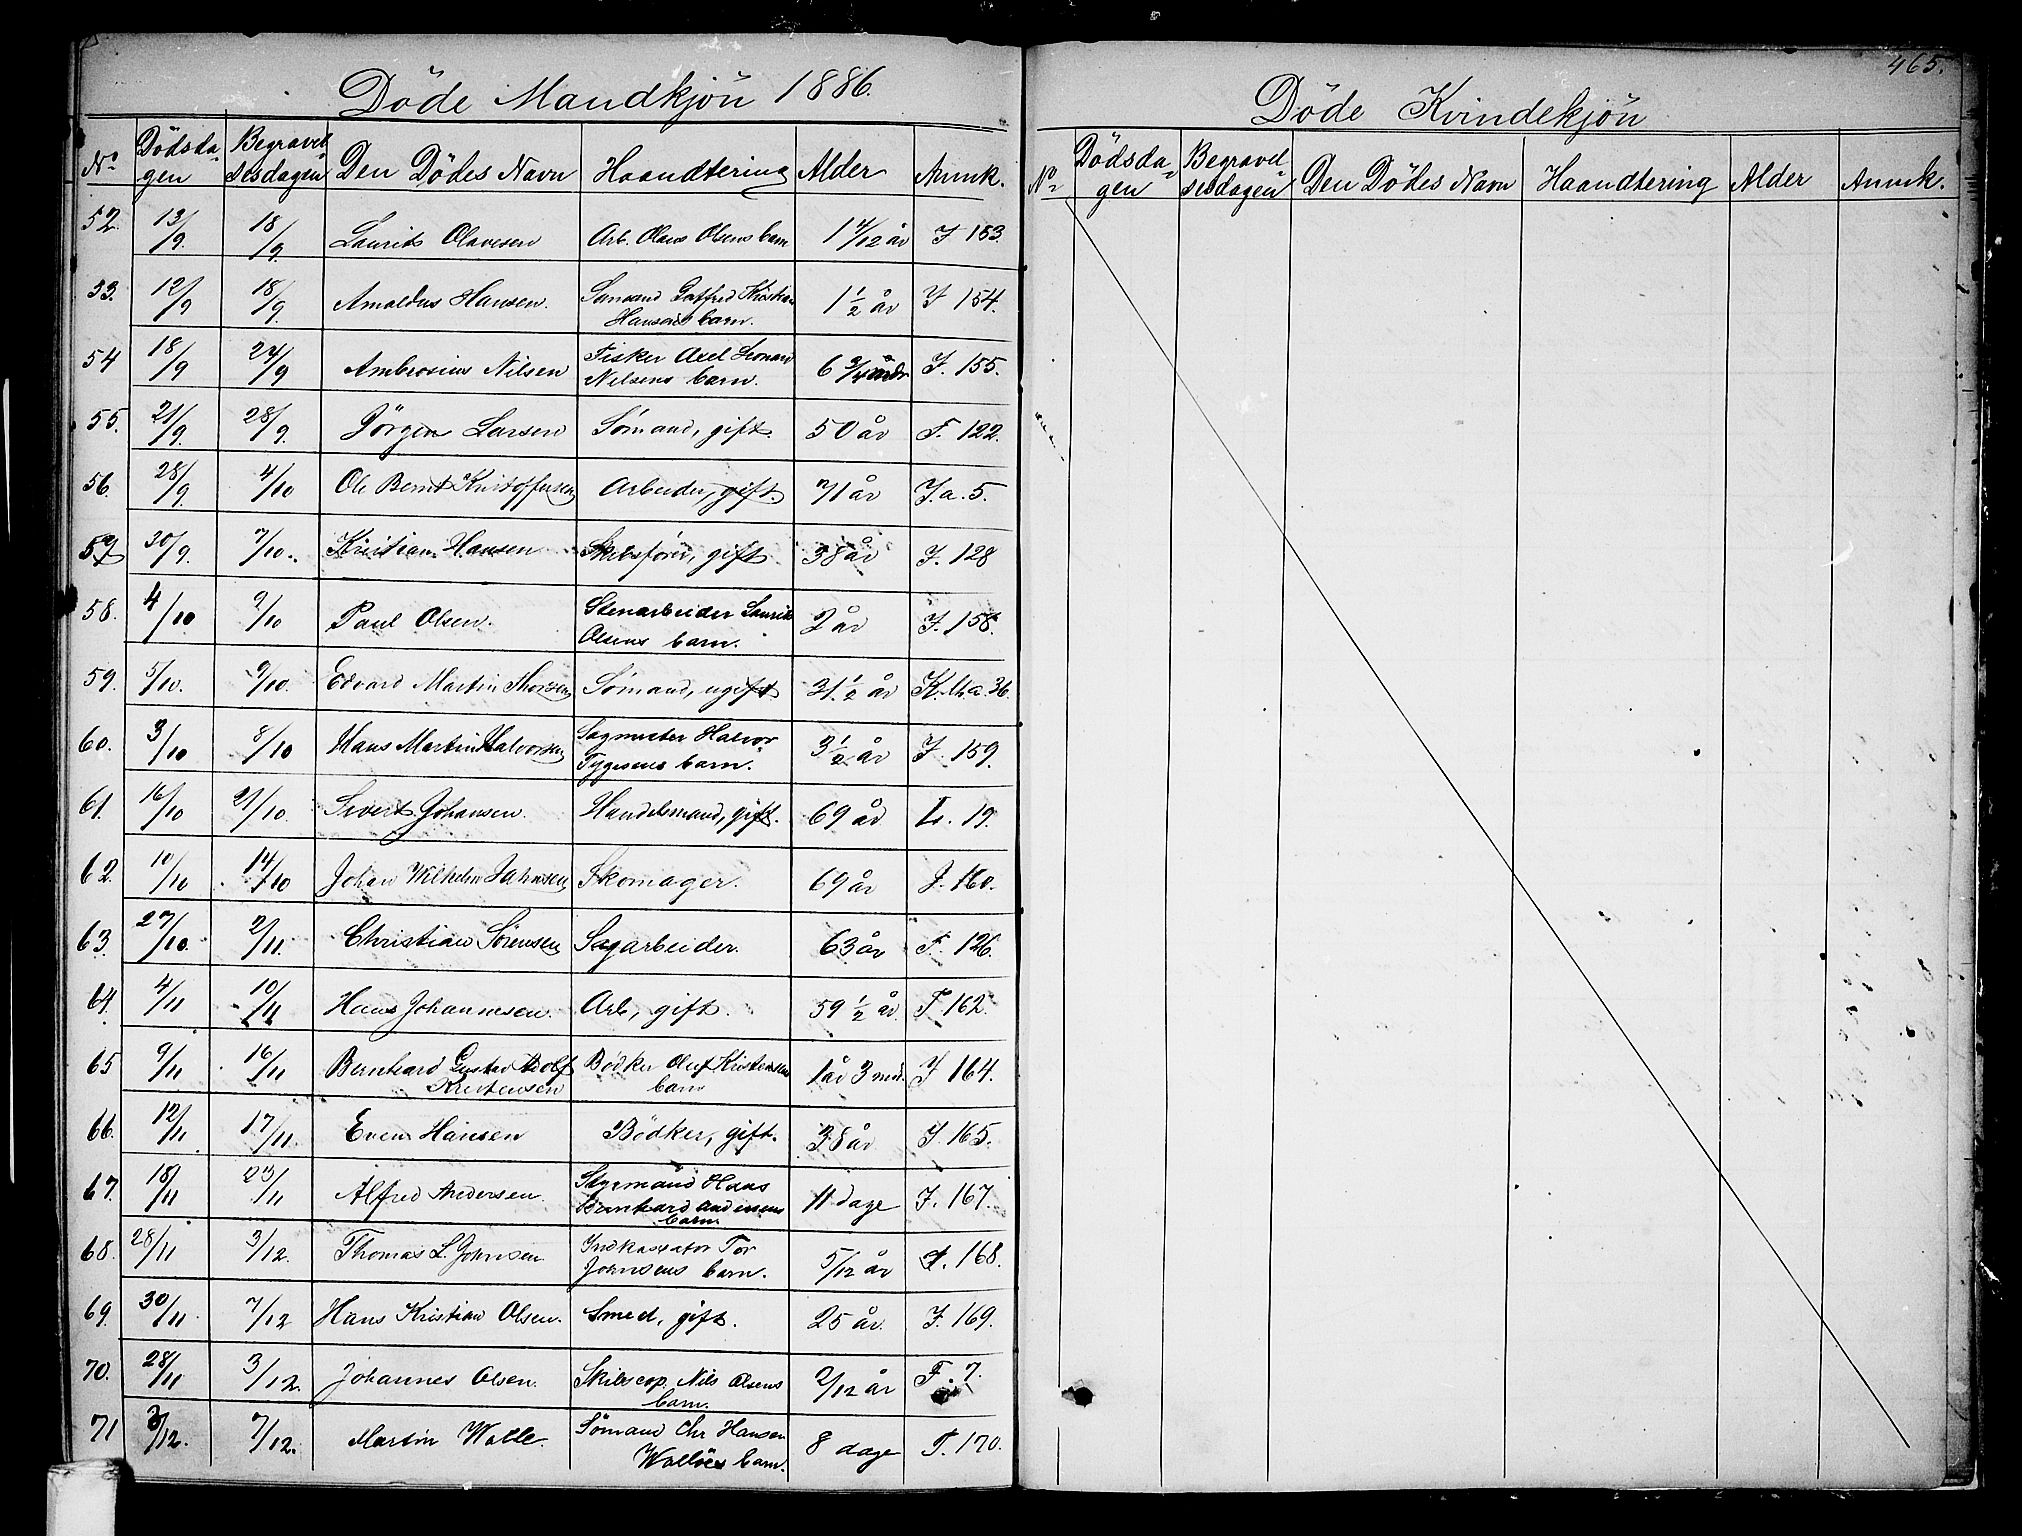 465.
Döde Mandkjön 1886.
No Dödsda=gen Begravel=sesdagen Den Dödes Navn Haandtering Alder Anmk.
52. 13/9. 18/9. Laurits Olavesen Arb. Olaus Olsens barn 1 4/12 år J 153.
53. 12/9 18/9. Arnoldus Hansen. Sømand Gotfred Kristian Hansens barn. 1 1/2 år J 154.
54 18/9 24/9 Ambrosius Nilsen Fisker Axel Leonard Nilsens barn. 6 3/4 mdr J. 155.
55. 21/9. 28/9. Jörgen Larsen Sømand, gift. 50 år F. 122.
56. 28/9 4/10 Ole Bernt Kristoffersen Arbeider, gift. 71 år J.a. 5.
57 30/9. 7/10. Kristian Hansen Skibsfører, gift 38 år J. 128
58. 4/10 9/10 Paul Olsen. Stenarbeider Laurits Olsens barn. 2 år J. 158.
59. 5/10. 9/10. Edvard Martin Thorsen Sømand, ugift 31 1/2 år K. 36.
60. 3/10 8/10 Hans Martin Halvorsen Sagmester Halvor Tygesens barn. 3 1/2 år J. 159.
61. 16/10 21/10. Sivert Johansen. Handelsmand, gift. 69 år L. 19.
62. 10/10 14/10 Johan Wilhelm Jahnsen Skomager. 69 år J. 160.
63. 27/10. 2/11. Christian Sörensen Sagarbeider. 63 år F. 126.
64. 4/11 10/11 Hans Johannesen. Arb, gift. 59 1/2 år. F 162.
65 9/11 16/11 Bernhard Gustav Adolf Kristensen Bödker Oluf Kristensens barn 1 år 3 mnd. J 164.
66. 12/11. 17/11. Even Hansen Bödker, gift. 38 år J. 165.
67. 18/11 23/11 Alfred Andersen. Styrmand Hans Bernhard Andersens barn 11 dage J. 167.
68. 28/11 3/12. Thomas L. Johnsen Indkassator Tor Johnsens barn. 5/12 år J. 168.
69. 30/11. 7/12 Hans Kristian Olsen. Smed, gift. 25 år. J. 169.
70. 28/11 3/12. Johannes Olsen. Skibscap. Nils Olsens barn. 2/12 år F. 7.
71 3/12. 7/12. Martin Walle. Sømand Chr Hansen Wallöes barn. 8 dage F. 170.
Döde Kvindekjön
No Dödsda=gen Begravel=sesdagen Den Dödes Navn Haandtering Alder Anmk.